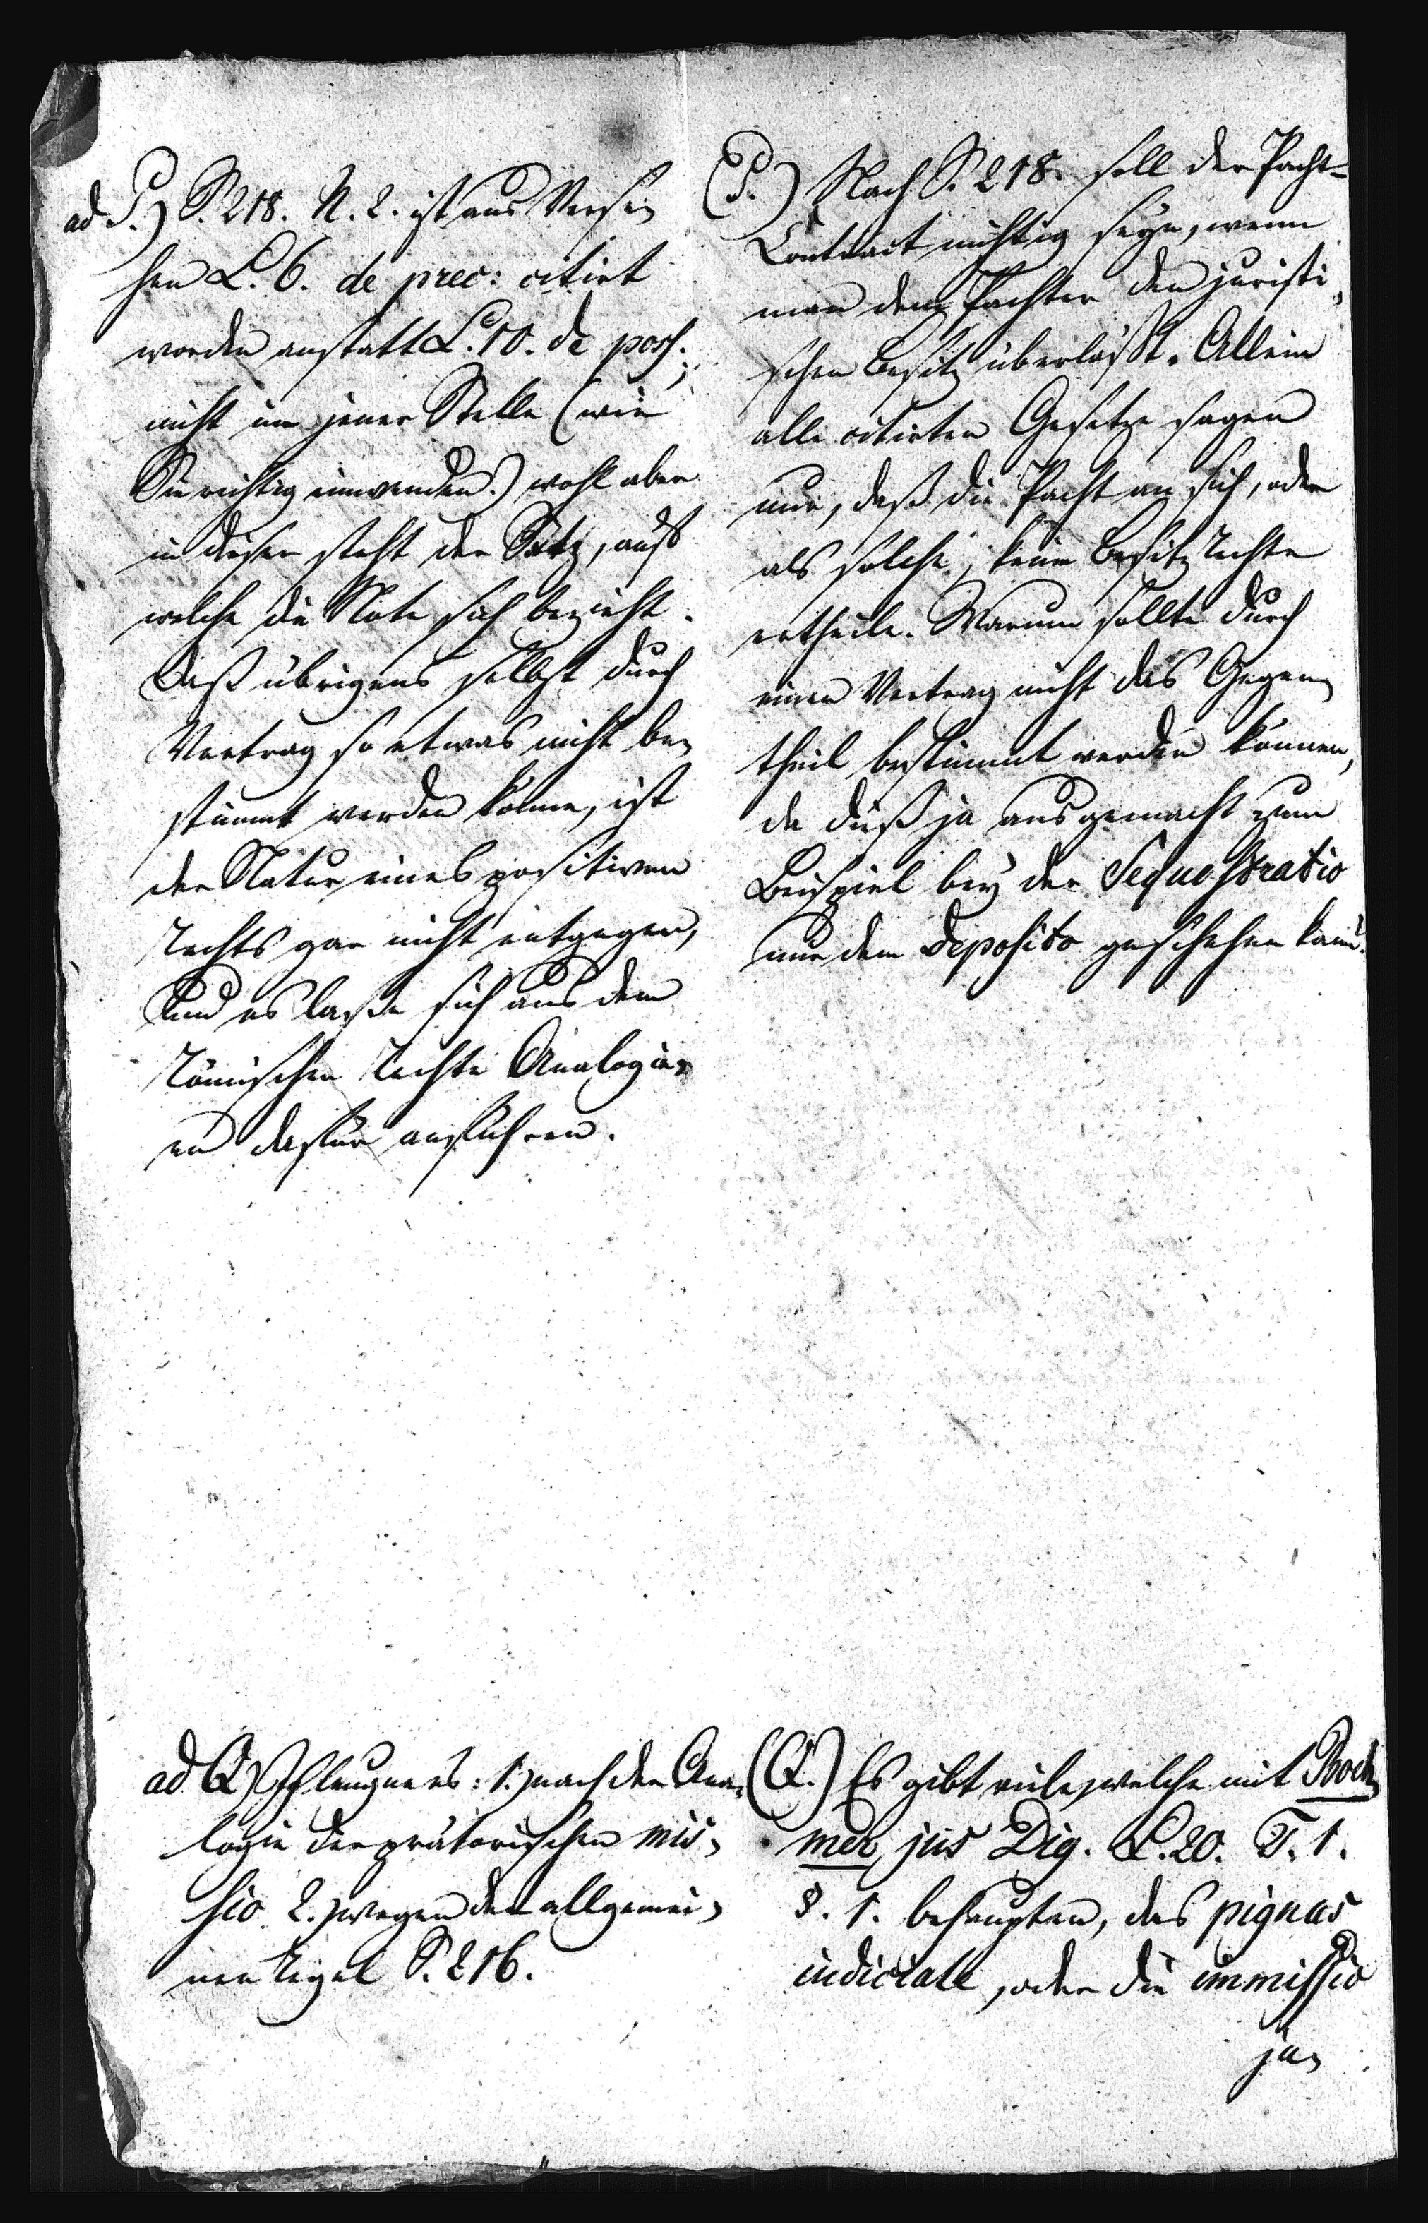 ad P.) S. 218. N. 2. ist aus Verse-
hen L. 6. de prec: citirt
worden anstatt L. 10. de poss.;
nicht in jener Stelle (wie
Sie richtig einwenden.) wohl aber
in dieser steht der Satz, auf
welche die Note sich bezieht.
Daß übrigens selbst durch
Vertrag so etwas nicht be-
stimmt werden könne, ist
der Natur eines positiven
Rechts gar nicht entgegen,
und es laße sich aus dem
Römischen Rechte Analogi-
en dafür anführen.
(P.) Nach S. 218. soll der Pacht-
Contract nichtig seyn, wenn
man dem Pachter den juristi-
schen Besitz überläßt. Allein
alle citirten Gesetze sagen
nur, daß die Pacht an sich, oder
als solche, keine Besitz Rechte
ertheile. Warum sollte durch
einen Vertrag nicht das Gegen-
theil bestimmt werden können,
da dieß ja ausgemacht zum
Beispiel bey der Sequestratio
und dem Deposito geschehen kann.
ad Q) Ich leugne es: 1.) nach der Ana-
logie der prätorischen mis-
sio 2.) wegen der allgemei-
nen Regel S. 216.
(Q.) Es gibt viele, welche mit Boeh-
mer, jus Dig. L. 20. T. 1.
§. 1. behaupten, das pignus
iudiciale, oder die immissio
ja-